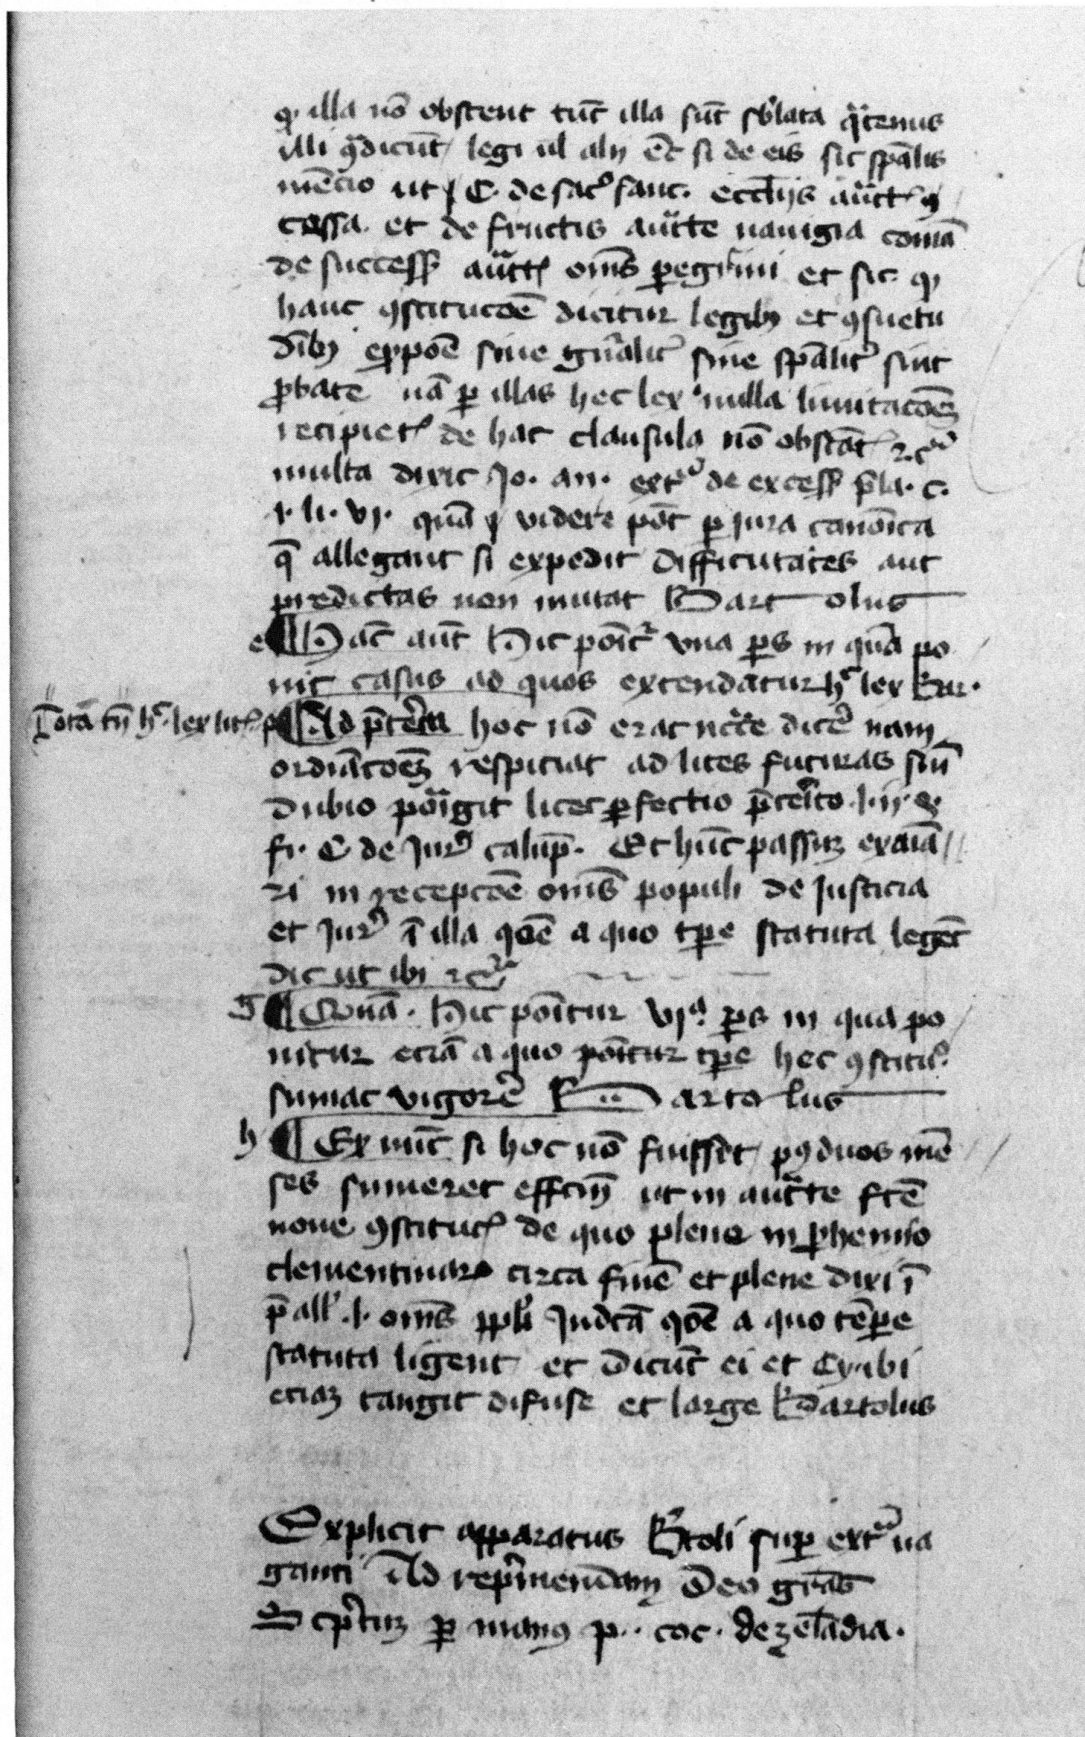 qꝫ illa nō obstent tūc illa sūt sblata qͣtenus
illi ꝯdicūt legi ul alij Et si de eis sit spālis
mēcio ut C. de sacͦ sanc. ecclijs auct ꝯ
cassa. et de fructis auͨte nauigia comā
de success auct omēs peregrini et sic qꝫ
hanc ꝯstitucōē dicitur legibꝫ et ꝯsuetu
dībꝫ siue gn̄alit̾ siue spālit̾ sint
ꝓbate nā ꝑ illas hec lex nulla limitacōēꝫ
recipiet de hac clausula nō obstāt ꝛcͣ
multa dixit Jo. an. extͣ de excess p̄la. c.
1. li. vj. quā videre pōt ꝑ iura canōica
q̄ allegant si expedit difficutates aut
predictas non mutat Bartolus
e ¶ Hāc aūt Hic pōitͬ vna ꝑs in quā po
nit casus ad quos extendatur hͨ lex Bar.
Nota tn̄ hͨ lex
f ¶ Ad p̄terita hoc nō erat ncͨͤe dicer̄ nam
ordīacōēꝫ respiciat ad lites futuras sin̄
dubio porͥgit licet ꝑfectio p̄terito l. ij. ꝛ
fi. C de Jurͩ calūp̄. Et hūc passuꝫ exaiā
ri in recepcōē omīs populi de Justicia
et Jurͤ ī illa qōē a quo tꝑe statuta legēt
dic ut ibi ꝛcͣ
g ¶ Hic pōitur vjͣ ꝑs in qua po
nitur eciā a quo pōitur tꝑe hec ꝯstituͦ
sumat vigorē Bartolus
h ¶ Ex nūc si hoc nō fuisset pꝰ duos mē
ses sumeret effcm̄ ut in auͨte
noue ꝯstitucͦ de quo plene in ꝓhemio
clementinarꝫ circa finē et plene dixi ī
p̄all .l. omēs ppli qōē a quo tēꝑe
statuta ligent et dicūt ei et Cy. ibi
eciaꝫ tangit difuse et large Bartolus
Explicit apparatus Bͬtoli suꝑ extͣua
ganti Ad rep̄mendam Deo grās
Scptuꝫ ꝑ manꝰ p.. coc. de zelādia.